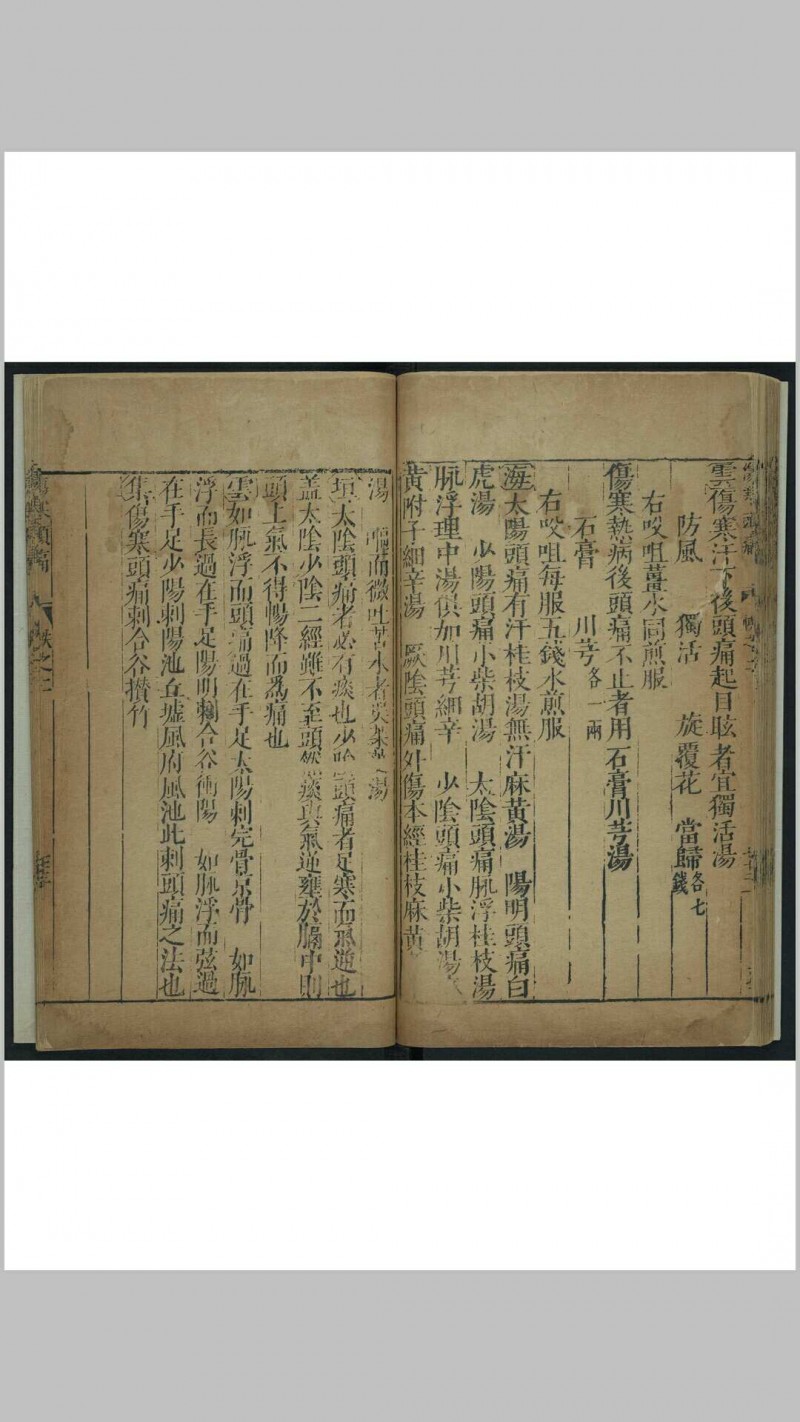 雲傷寒汗下後頭痛起目眩者宜獨活湯
防風　獨活　旋覆花　當歸各七錢
右㕮咀薑水同煎服
傷寒熱病後頭痛不止者用石膏川芎湯
石膏　川芎各一兩
右㕮咀每服五錢水煎服
海太陽頭痛有汗桂枝湯無汗麻黃湯　陽明頭痛白
虎湯　少陽頭痛小柴胡湯　太陰頭痛脉浮桂枝湯
脉浮理中湯俱如川芎細辛　少陰頭痛小柴胡湯
黃附子細辛湯　厥陰頭痛外傷本經桂枝麻黃
湯　嘔而微吐苦水者吳茱萸湯
垣太陰頭痛者必有痰也少陰頭痛者足寒而氣逆也
盖太陰少陰二經雖不至頭然痰與氣逆壅於膈中則
頭上氣不得暢降而為痛也
雲如脉浮而頭痛過在手足太陽刺完骨京骨　如脉
浮而長過在手足陽明刺合谷衝陽　如脉浮而弦過
在手足少陽刺陽池丘墟風府風池此刺頭痛之法也
集傷寒頭痛刺合谷攢竹